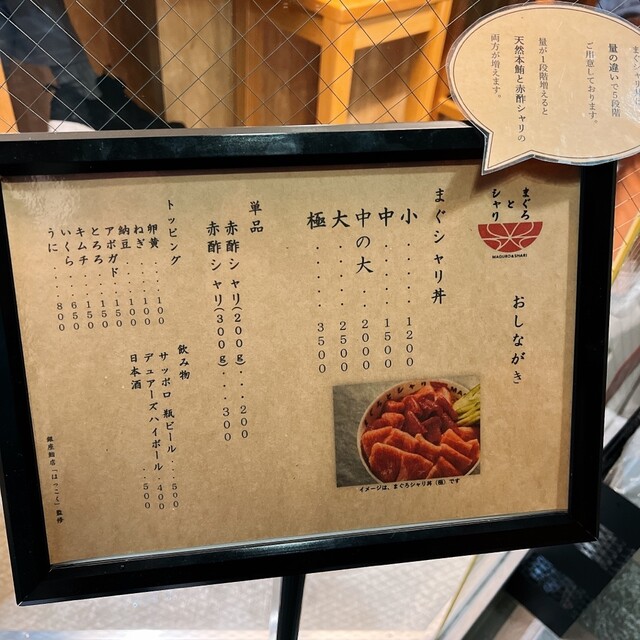 量の違いで5段階
ご用意しております。
量が1段階増えると
天然本鮪と赤酢シャリの
両方が増えます。
まぐろ
と
シャリ
MAGURO&SHARI
おしながき
まぐシャリ丼
小・・・・・1200
中・・・・・1500
中の大・・・2000
大・・・・・2500
極・・・・・3500
イメージは、まぐろシャリ丼(極)です
単品
赤酢シャリ(200g)・・・200
赤酢シャリ(300g)・・・300
トッピング
卵黄・・・100
ねぎ・・・100
納豆・・・100
アボガド・・・150
とろろ・・・150
キムチ・・・150
いくら・・・650
うに・・・800
飲み物
サッポロ 瓶ビール・・500
デュアーズハイボール・400
日本酒・・・500
銀座鮨店「はっこく」監修